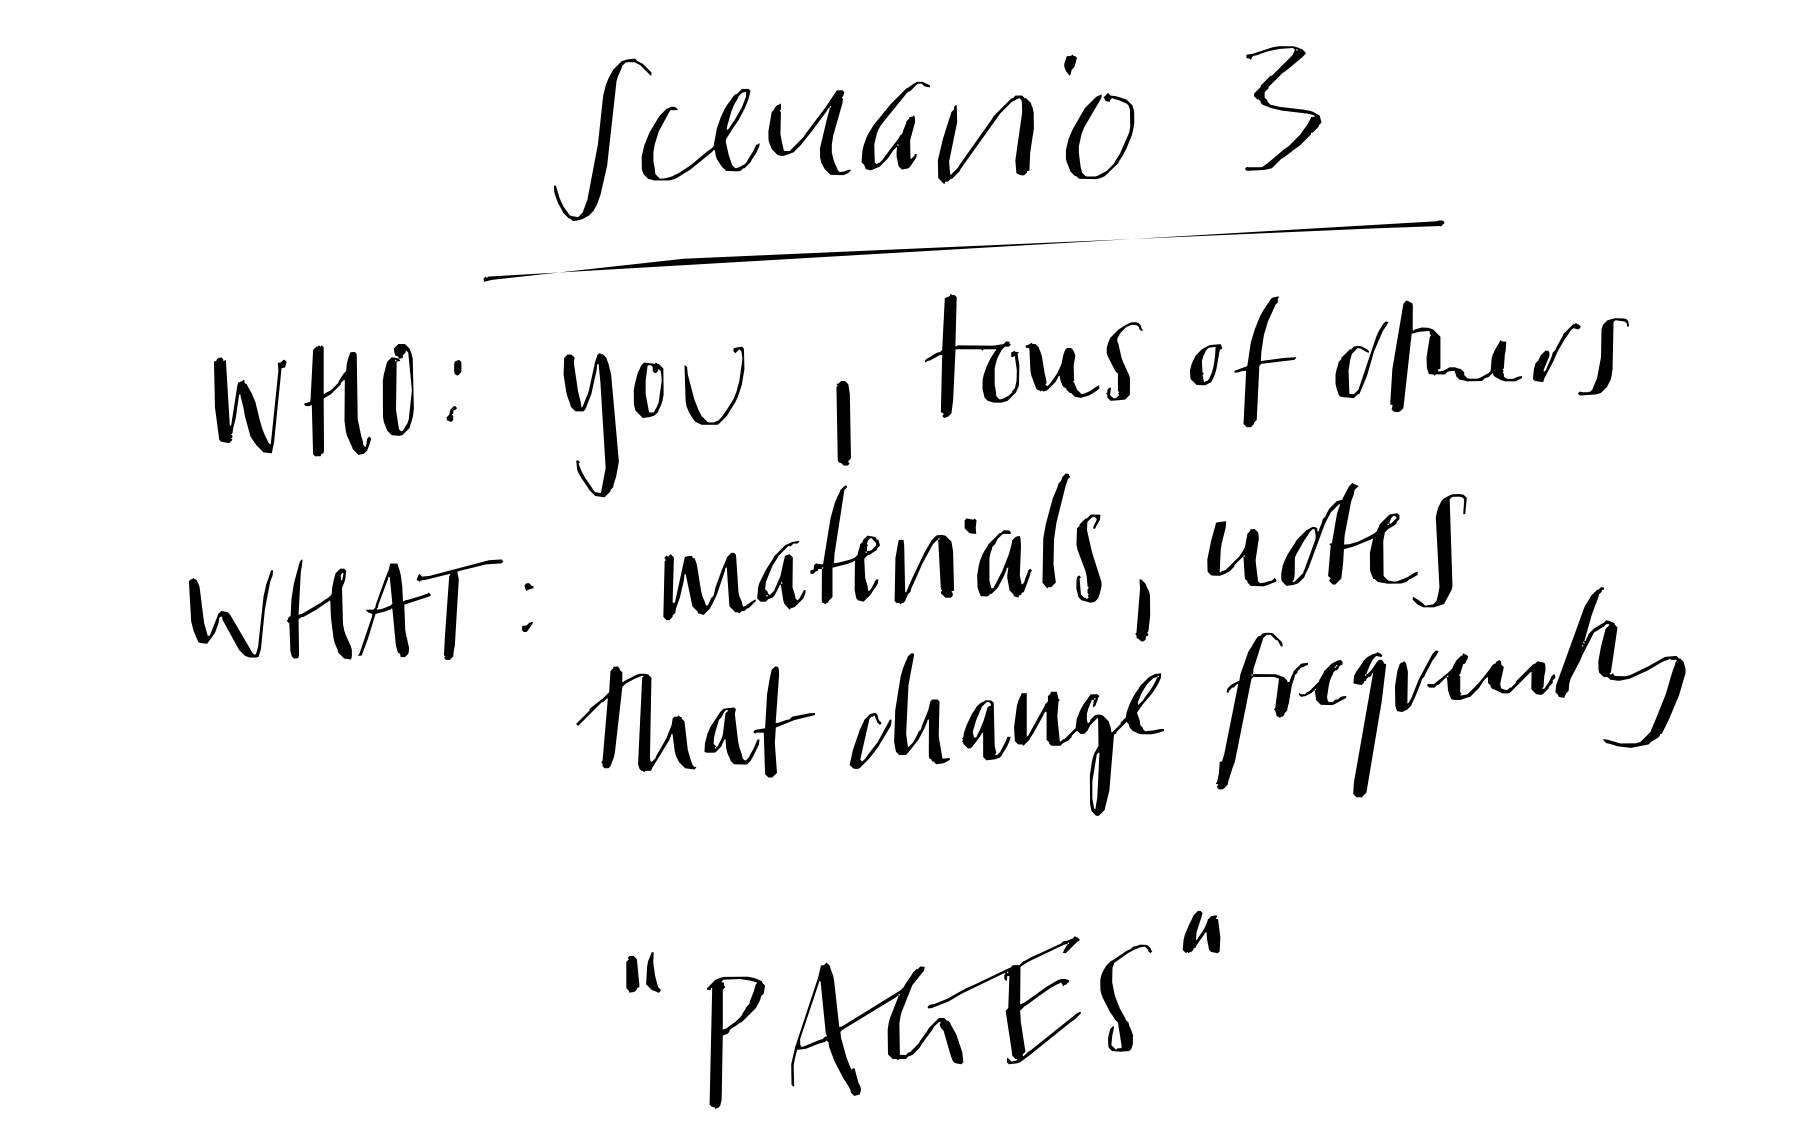 Scenario 3
WHO: you, tons of others
WHAT: materials, notes
that change frequently
"PAGES"